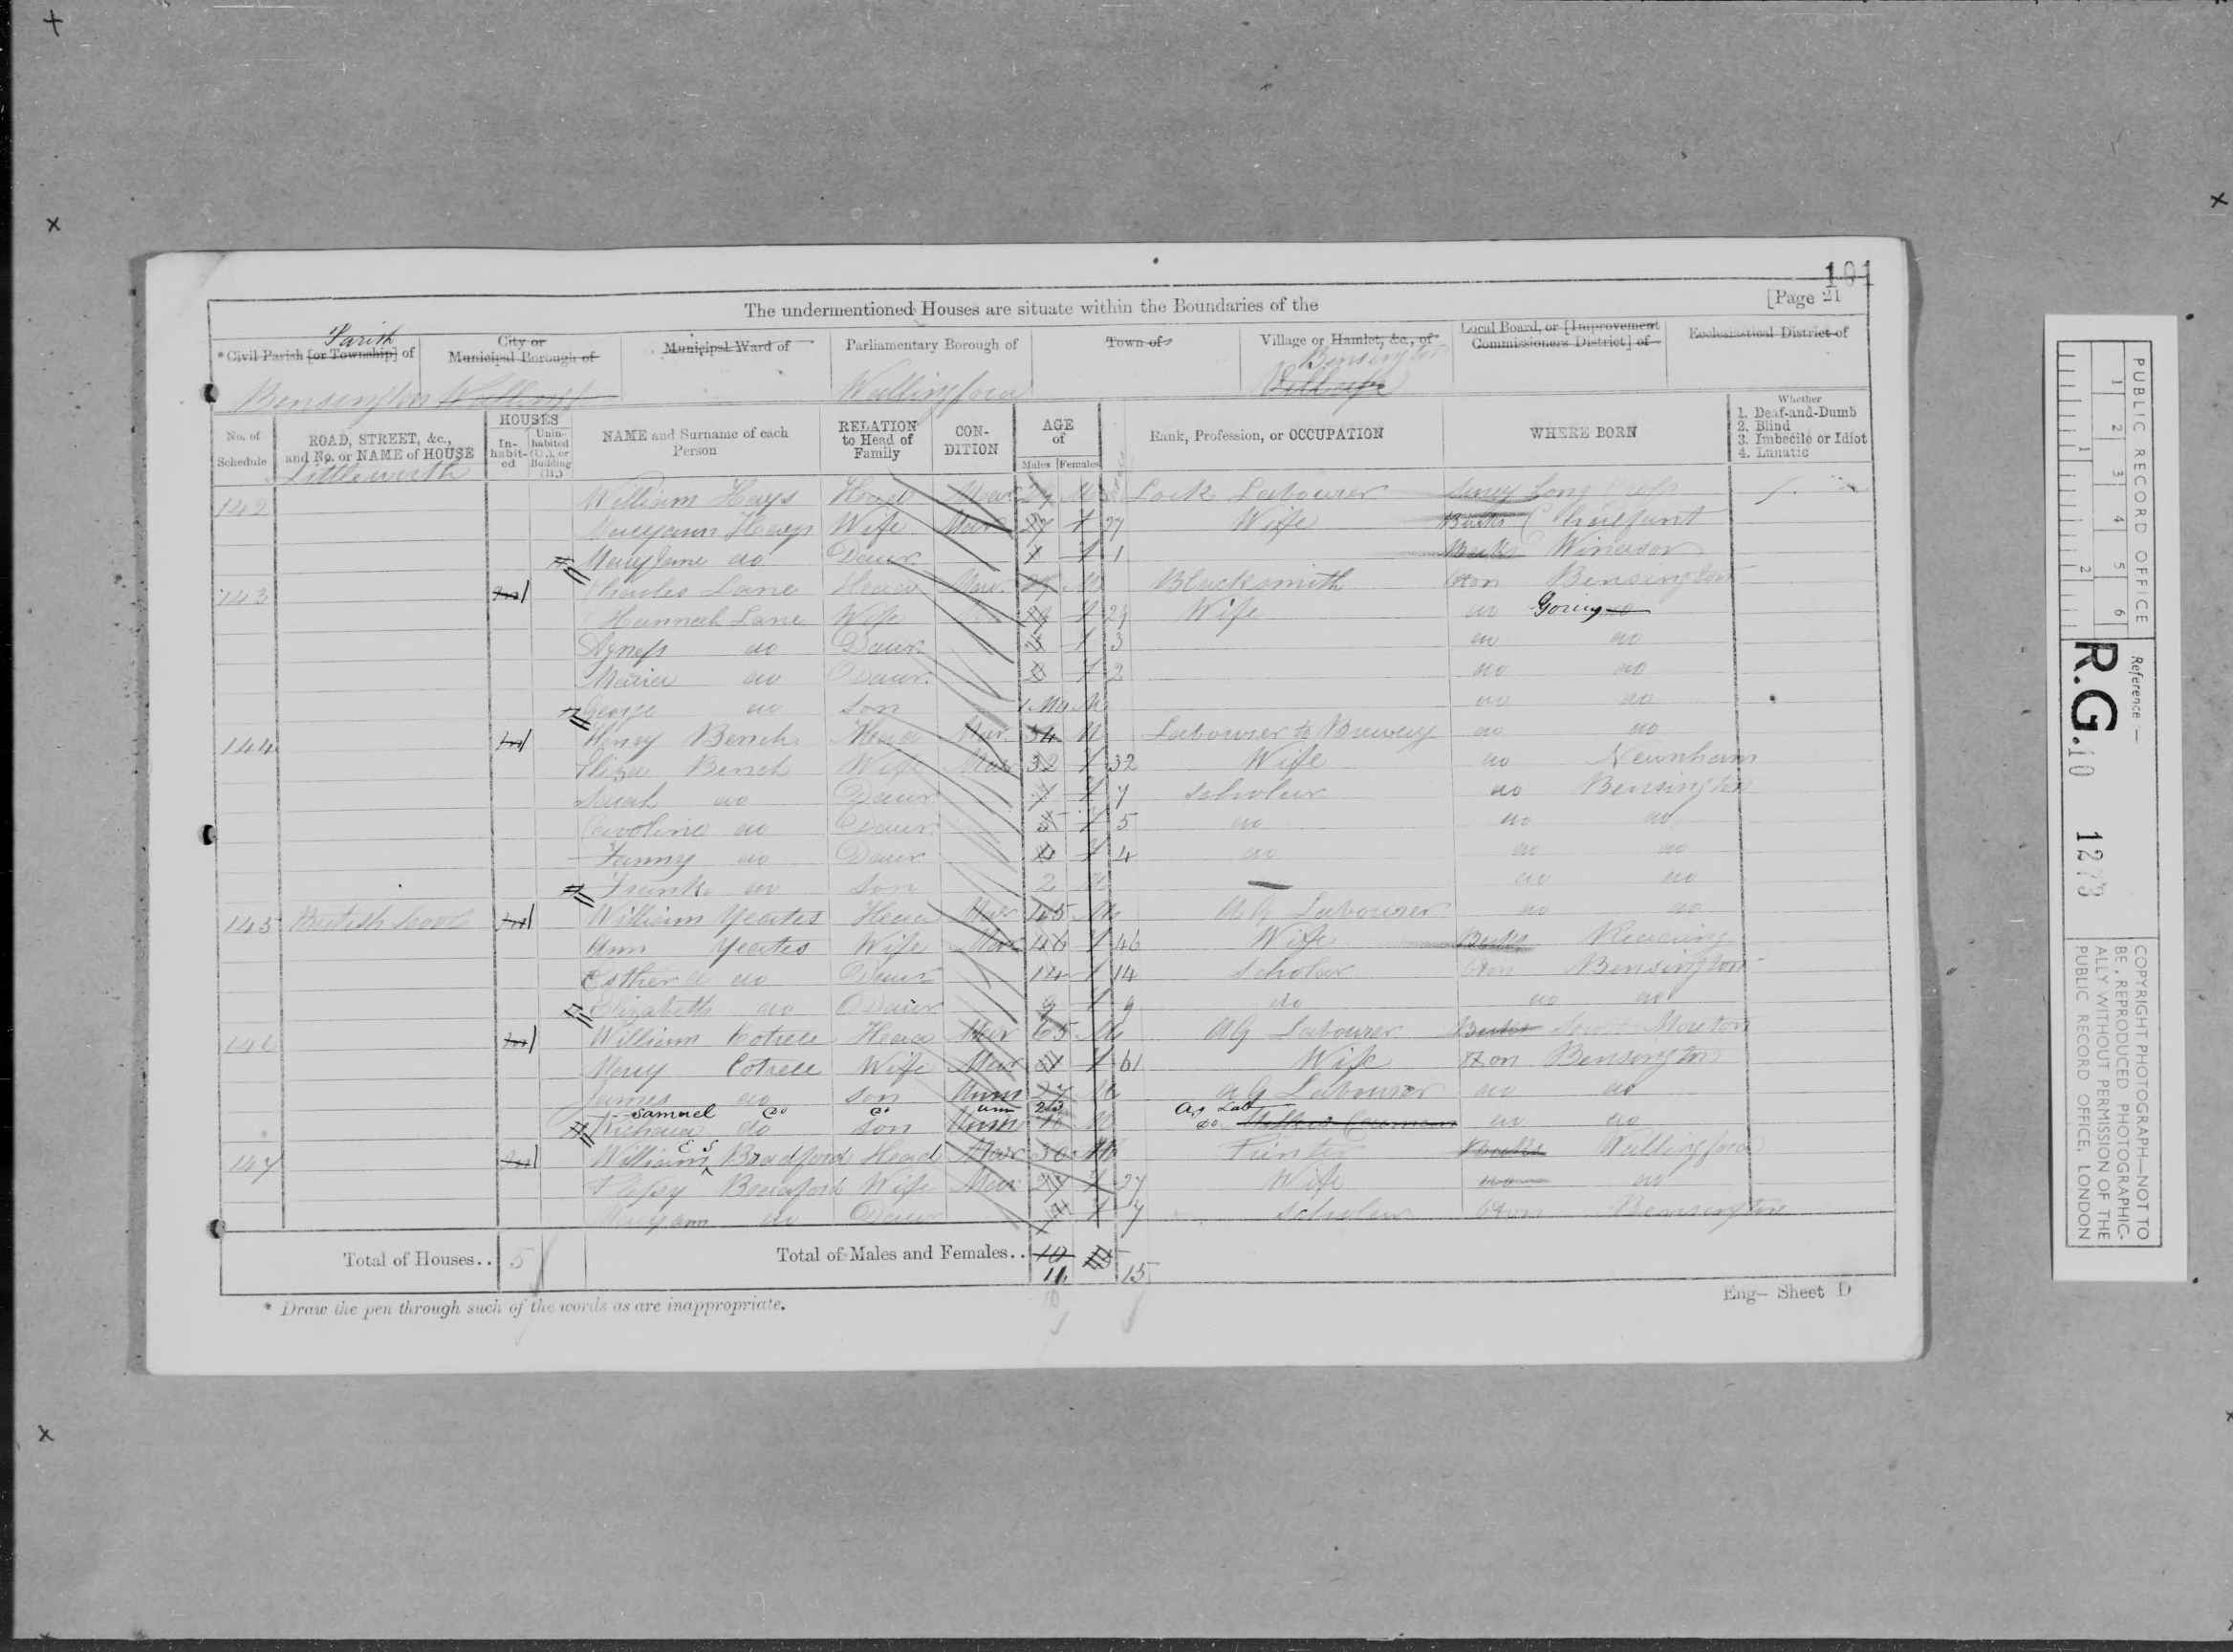 101
[Page 21
The undermentioned Houses are situate within the Boundaries of the
Parish
* Civil Parish [or Township] of
City or Municipal Borough of
Municipal Ward of
Parliamentary Borough of
Town of
Village or Hamlet, &c., of
Local Board, or [Improvement Commissioners District] of
Ecclesiastical District of
Bensington Wallingford Bensington
No. of Schedule
ROAD, STREET, &c., and No. or NAME of HOUSE
HOUSES
In-habit-ed
Unin-habited (U.), or Building (B.)
NAME and Surname of each Person
RELATION to Head of Family
CON-DITION
AGE of
Males Females
Rank, Profession, or OCCUPATION
WHERE BORN
Whether
1. Deaf-and-Dumb
2. Blind
3. Imbecile or Idiot
4. Lunatic
Littleworth
142 William Hays Head Mar 29 M Lock Labourer Surrey Long
Maryann Hays Wife Mar 27 f 27 Wife Bucks Chalfont
Mary Jane do Daur 1 f 1 Berks Windsor
143 Charles Lane Head Mar 29 M Blacksmith Oxon Bensington
Hannah Lane Wife f 29 Wife do Goring
Agness do Daur 3 f 3 do do
Maria do Daur 2 f 2 do do
George do Son 1 Mo M do do
144 Henry Bench Head Mar 34 M Labourer to Brewery do do
Eliza Bench Wife Mar 32 f 32 Wife do Newnham
Sarah do Daur 7 f 7 Scholar do Bensington
Caroline do Daur 5 f 5 do do do
Fanny do Daur 4 f 4 do do do
Frank do Son 2 M do do
145 British School William Yeates Head Mar 45 M AG Labourer do do
Ann Yeates Wife Mar 46 f 46 Wife Berks Reading
Esther A do Daur 14 f 14 Scholar Oxon Bensington
Elizabeth do Daur 9 f 9 do do do
146 William Cotrell Head Mar 65 M AG Labourer Berks Moreton
Mary Cotrell Wife Mar 61 f 61 Wife Oxon Bensington
James do Son Unm 27 M AG Labourer do do
Samuel do do unm 23 Ag Lab
Richard do Son Unm 16 M do do do
147 William Bradford Head Mar 30 M Berks Wallingford
Betsy Bradford Wife Mar 27 f 27 Wife do do
Maryann do Daur f 7 Scholar Oxon Bensington
Total of Houses.. 5
Total of Males and Females.. 10
11 15
* Draw the pen through such of the words as are inappropriate.
Eng- Sheet D
PUBLIC RECORD OFFICE
1 2 3 4 5 6
1 2
Reference :-
R.G. 10 1273
COPYRIGHT PHOTOGRAPH—NOT TO
BE REPRODUCED PHOTOGRAPHIC-
ALLY WITHOUT PERMISSION OF THE
PUBLIC RECORD OFFICE, LONDON